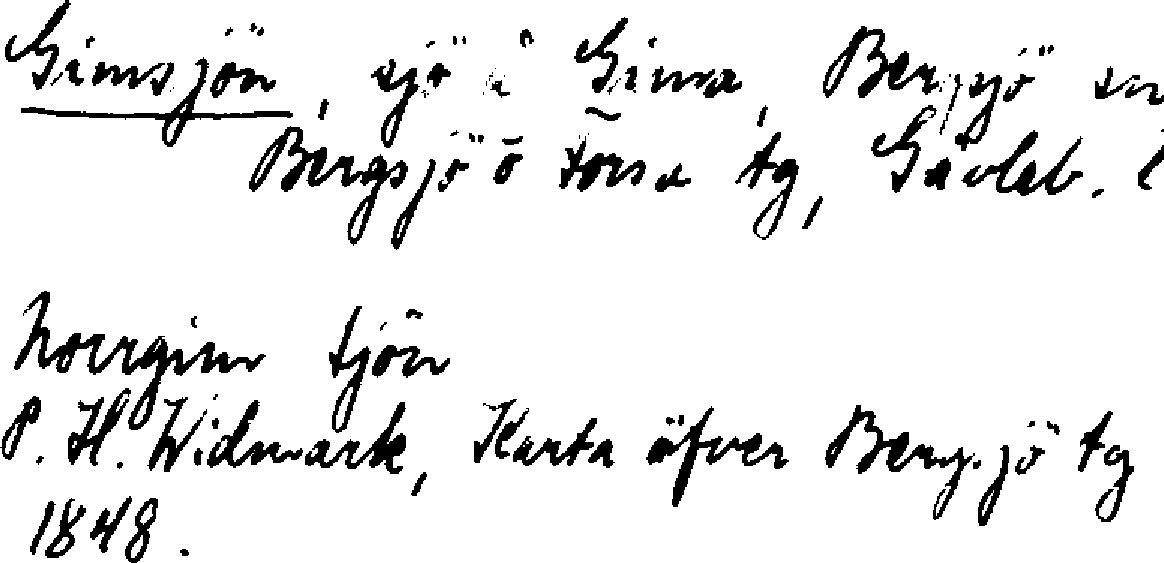 Gimsjön, sjö å Gimsa, Bergsjö sn,
Bergsjö o Forsa tg, Gävleb. l
Norrgim tjön
P. H. Widmark, Karta öfver Bergsjö tg
1848.